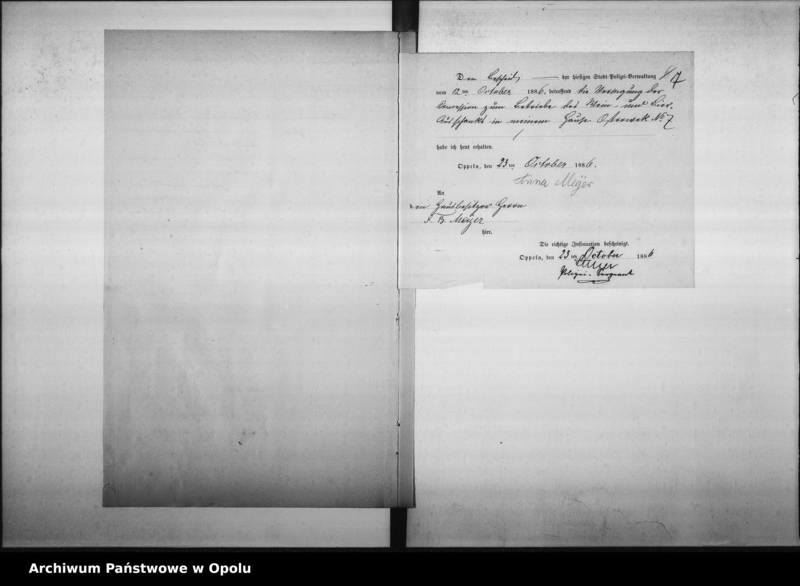 Den Bescheid der hiesigen Stadt-Polizei-Verwaltung
7
vom 12ten October 1886, betreffend die Versagung der
Concession zum Betriebe des Wein- und Bier-
Ausschanks in meinem Hause No 7
habe ich heut erhalten.
Oppeln, den 23ten October 1886.
Anna Meyer
An
den Hausbesitzer Herrn
J. B. Meyer
hier.
Die richtige Insinuation bescheinigt.
Oppeln, den 23ten October 1886
Polizei-Sergeant
Archiwum Państwowe w Opolu